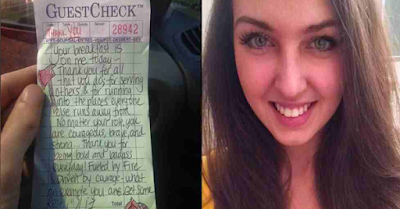 GUESTCHECK™
Thank You
28942
Your breakfast is
on me today –
Thank you for all
that you do; for serving
others & for running
into the places everyone
else runs away from.
No matter your role, you
are courageous, brave, and
strong. Thank you for
being bold and badass
everyday! Fueled by Fire
& Driven by courage - what
an example you are. Get some
Total